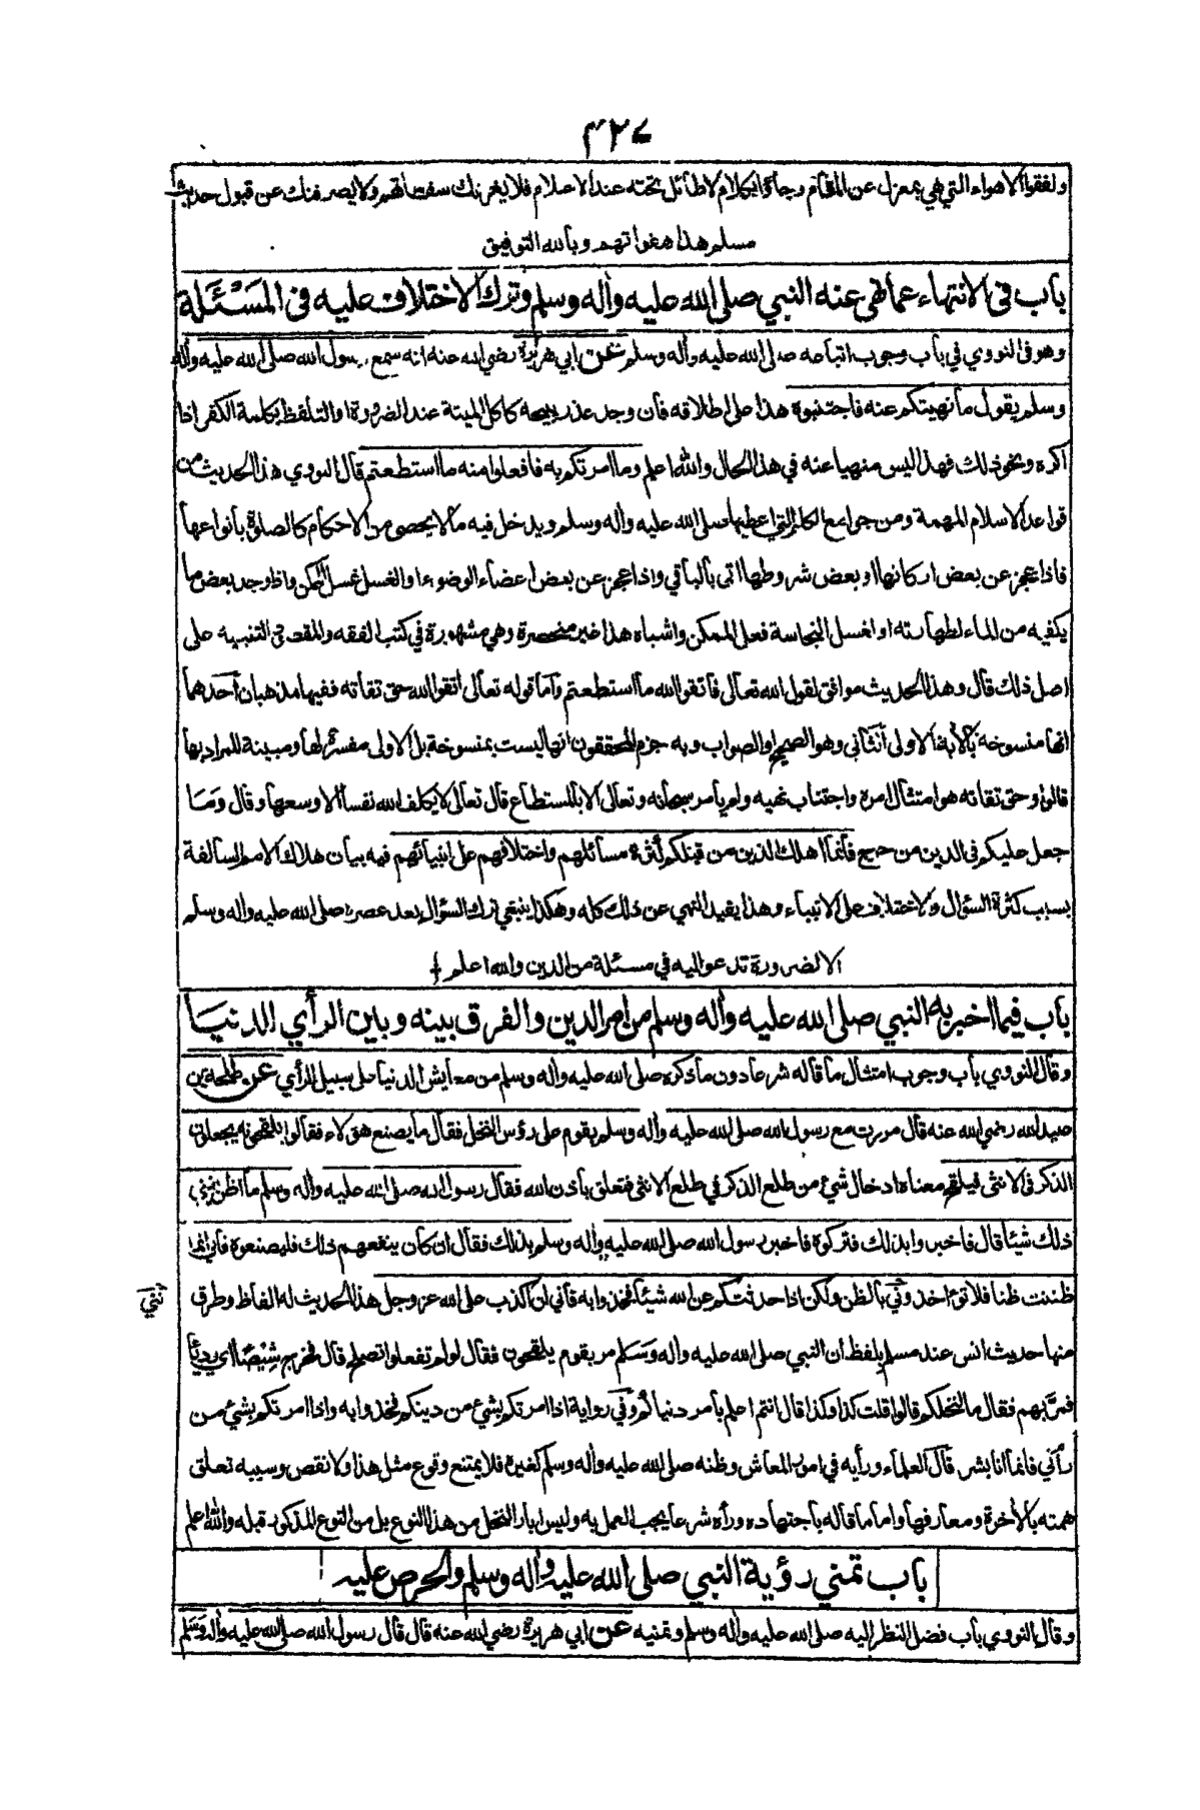 ٤٢٧
ولفقوا الاهواء التي هي بمعزل عن المقام وجاؤا بكلام لا طائل تحته عند الاعلام فلا يغرنك سفسافهم ولا يصرفنك عن قبول حديث
مسلم هذا هفواتهم وبالله التوفيق
باب في الانتهاء عما نهى عنه النبي صلى الله عليه وآله وسلم وترك الاختلاف عليه في المَسْئَلة
وهو في النووي في باب وجوب اتباعه صلى الله عليه وآله وسلم عن ابي هريرة رضي الله عنه انه سمع رسول الله صلى الله عليه وآله
وسلم يقول ما نهيتكم عنه فاجتنبوه هذا على اطلاقه فان وجد عذر يبيحه كاكل الميتة عند الضرورة او التلفظ بكلمة الكفر اذا
اكره ونحو ذلك فهذا ليس منهيا عنه في هذا الحال والله اعلم وما امرتكم به فافعلوا منه ما استطعتم قال النووي هذا الحديث من
قواعد الاسلام المهمة ومن جوامع الكلم التي اعطيها صلى الله عليه وآله وسلم ويدخل فيه ما لا يحصى من الاحكام كالصلوة بانواعها
فاذا عجز عن بعض اركانها او بعض شروطها اتى بالباقي واذا عجز عن بعض اعضاء الوضوء او الغسل غسل الممكن واذا وجد بعض ما
يكفيه من الماء لطهارته او لغسل النجاسة فعل الممكن واشباه هذا غير منحصرة وهي مشهورة في كتب الفقه والمقصود التنبيه على
اصل ذلك قال وهذا الحديث موافق لقول الله تعالى فاتقوا الله ما استطعتم واما قوله تعالى اتقوا الله حق تقاته ففيها مذهبان احدهما
انها منسوخة بالآية الاولى الثاني وهو الصحيح او الصواب وبه جزم المحققون انها ليست بمنسوخة بل الاولى مفسرة لها ومبينة للمراد بها
قالوا وحق تقاته هو امتثال امره واجتناب نهيه ولم يأمر سبحانه وتعالى الا بالمستطاع قال تعالى لا يكلف الله نفسا الا وسعها وقال وَمَا
جعل عليكم في الدين من حرج فانما اهلك الذين من قبلكم كثرة مسائلهم واختلافهم على انبيائهم فيه بيان هلاك الامم السالفة
بسبب كثرة السؤال والاختلاف على الانبياء وهذا يفيد النهي عن ذلك كله وهكذا ينبغي ترك السؤال بعد عصره صلى الله عليه وآله وسلم
الا لضرورة تدعو اليه في مسئلة من الدين والله اعلم
باب فيما اخبر به النبي صلى الله عليه وآله وسلم من امر الدين والفرق بينه وبين الرأي الدنيا
وقال النووي باب وجوب امتثال ما قاله شرعا دون ما ذكره صلى الله عليه وآله وسلم من معايش الدنيا على سبيل الرأي عن طلحة بن
عبيد الله رضي الله عنه قال مررت مع رسول الله صلى الله عليه وآله وسلم بقوم على رؤس النخل فقال ما يصنع هؤلاء فقالوا يلقحونه يجعلون
الذكر في الانثى فيلقح معناه ادخال شيء من طلع الذكر في طلع الانثى فتعلق باذن الله فقال رسول الله صلى الله عليه وآله وسلم ما اظن يغني
ذلك شيئا قال فاخبروا بذلك فتركوه فاخبر رسول الله صلى الله عليه وآله وسلم بذلك فقال ان كان ينفعهم ذلك فليصنعوه فاني انما
ظننت ظنا فلا تؤاخذوني بالظن ولكن اذا حدثتكم عن الله شيئا فخذوا به فاني لن اكذب على الله عز وجل هذا الحديث له الفاظ وطرق
منها حديث انس عند مسلم بلفظ ان النبي صلى الله عليه وآله وَسَلم مر بقوم يلقحون فقال لو لم تفعلوا لصلح قال فخرج شِيْصًا اي رديًّا
فمرّ بهم فقال ما لنخلكم قالوا قلت كذا وكذا قال انتم اعلم بامر دنياكم وفي رواية اذا امرتكم بشيء من دينكم فخذوا به واذا امرتكم بشيء من
رأئي فانما انا بشر قال العلماء ورأيه في امور المعاش وظنه صلى الله عليه وآله وسلم كغيره فلا يمتنع وقوع مثل هذا ولا نقص وسببه تعلق
همته بالآخرة ومعارفها واما ما قاله باجتهاده ورآه شرعا يجب العمل به وليس ابار النخل من هذا النوع بل من النوع المذكور قبله والله اعلم
باب تمني رؤية النبي صلى الله عليه وآله وسلم والحرص عليه
وقال النووي باب فضل النظر اليه صلى الله عليه وآله وسلم وتمنيه عن ابي هريرة رضي الله عنه قال قال رسول الله صلى الله عليه وآله وَسَلم